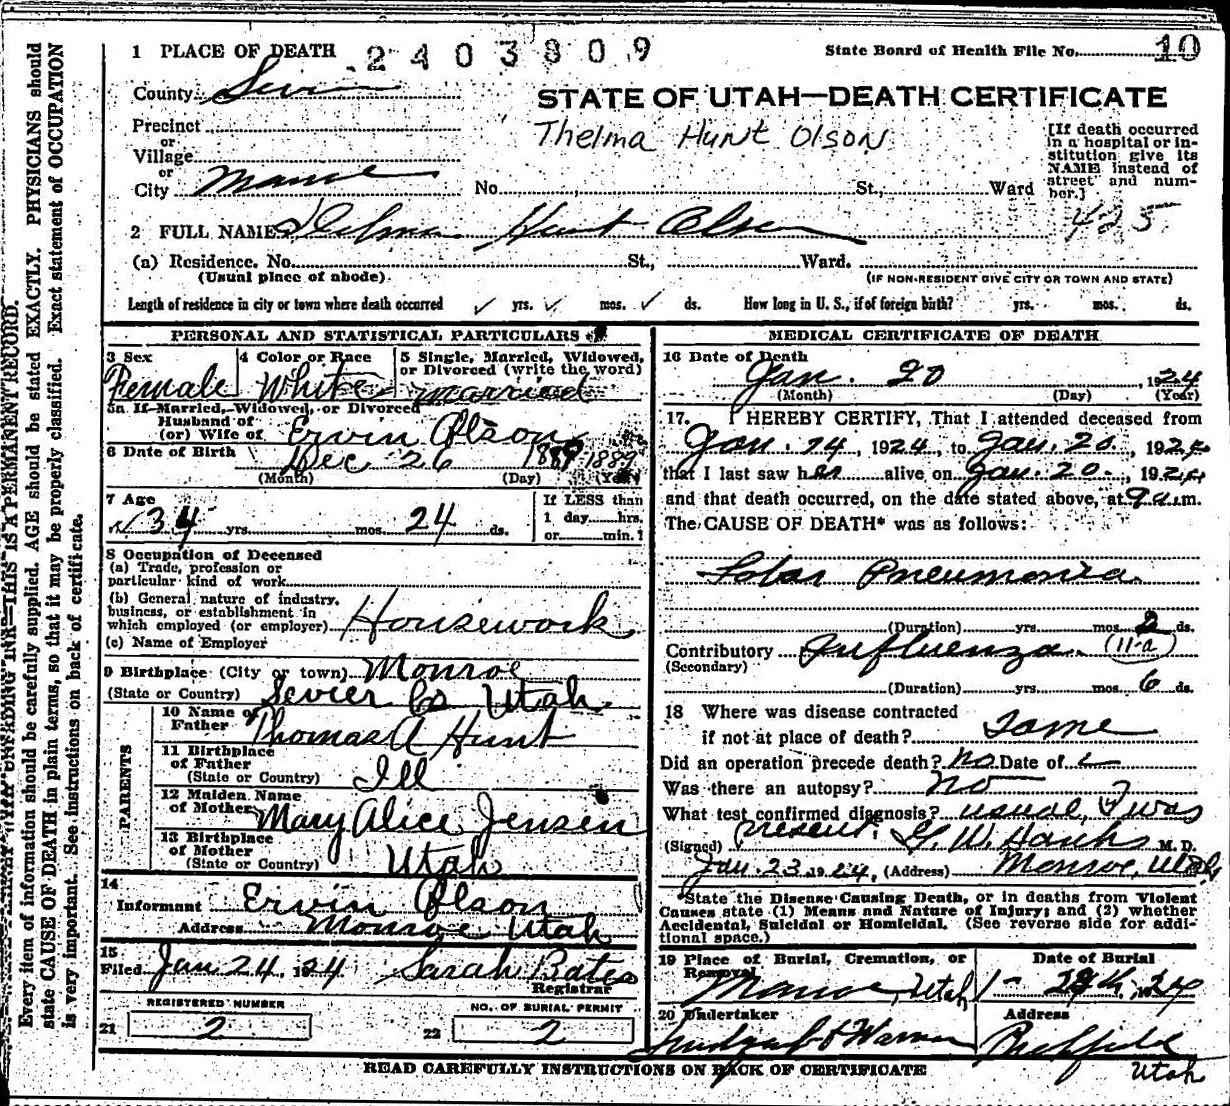 1 PLACE OF DEATH 2403809 State Board of Health File No. 10
County Sevier
STATE OF UTAH—DEATH CERTIFICATE
Precinct
or
Village
or
City Monroe No. St., Ward
Thelma Hunt Olson
[If death occurred
in a hospital or in-
stitution give its
NAME instead of
street and num-
ber.]
425
2 FULL NAME Thelma Hunt Olson
(a) Residence. No. St., Ward.
(Usual place of abode) (IF NON-RESIDENT GIVE CITY OR TOWN AND STATE)
Length of residence in city or town where death occurred ✓ yrs. ✓ mos. ✓ ds. How long in U. S., if of foreign birth? yrs. mos. ds.
PERSONAL AND STATISTICAL PARTICULARS
3 Sex
Female
4 Color or Race
White
5 Single, Married, Widowed,
or Divorced (write the word)
married
5a If Married, Widowed, or Divorced
Husband of
(or) Wife of Ervin Olson
6 Date of Birth Dec 26 1889 1889
(Month) (Day) (Year)
7 Age
34 yrs. mos. 24 ds.
If LESS than
1 day hrs.
or min.?
8 Occupation of Deceased
(a) Trade, profession or
particular kind of work
(b) General nature of industry,
business, or establishment in
which employed (or employer) Housework
(c) Name of Employer
9 Birthplace (City or town) Monroe
(State or Country) Sevier Co Utah.
PARENTS
10 Name of
Father Thomas A Hunt
11 Birthplace
of Father
(State or Country) Ill
12 Maiden Name
of Mother Mary Alice Jensen
13 Birthplace
of Mother
(State or Country) Utah
14
Informant Ervin Olson
Address Monroe Utah
15
Filed Jan 24, 1924 Sarah Bates
Registrar
REGISTERED NUMBER
21 2
NO. OF BURIAL PERMIT
22 2
MEDICAL CERTIFICATE OF DEATH
16 Date of Death
Jan. 20, 1924
(Month) (Day) (Year)
17. I HEREBY CERTIFY, That I attended deceased from
Jan. 14, 1924, to Jan. 20, 1924
that I last saw her alive on Jan. 20., 1924
and that death occurred, on the date stated above, at 9 a.m.
The CAUSE OF DEATH* was as follows:
Lobar Pneumonia
(Duration) yrs mos 2 ds.
Contributory Influenza. (11-a)
(Secondary)
(Duration) yrs mos 6 ds.
18 Where was disease contracted
if not at place of death? Same
Did an operation precede death? no Date of
Was there an autopsy? no
What test confirmed diagnosis? usual, I was
present.
(Signed) G. W. Hanks M. D.
Jan. 23, 1924, (Address) Monroe, Utah
*State the Disease Causing Death, or in deaths from Violent
Causes state (1) Means and Nature of Injury; and (2) whether
Accidental, Suicidal or Homicidal. (See reverse side for addi-
tional space.)
19 Place of Burial, Cremation, or
Removal
Monroe, Utah
Date of Burial
1- 24
20 Undertaker
Address
Richfield
Utah
READ CAREFULLY INSTRUCTIONS ON BACK OF CERTIFICATE
THIS IS A PERMANENT RECORD.
Every item of information should be carefully supplied. AGE should be stated EXACTLY. PHYSICIANS should
state CAUSE OF DEATH in plain terms, so that it may be properly classified. Exact statement of OCCUPATION
is very important. See instructions on back of certificate.